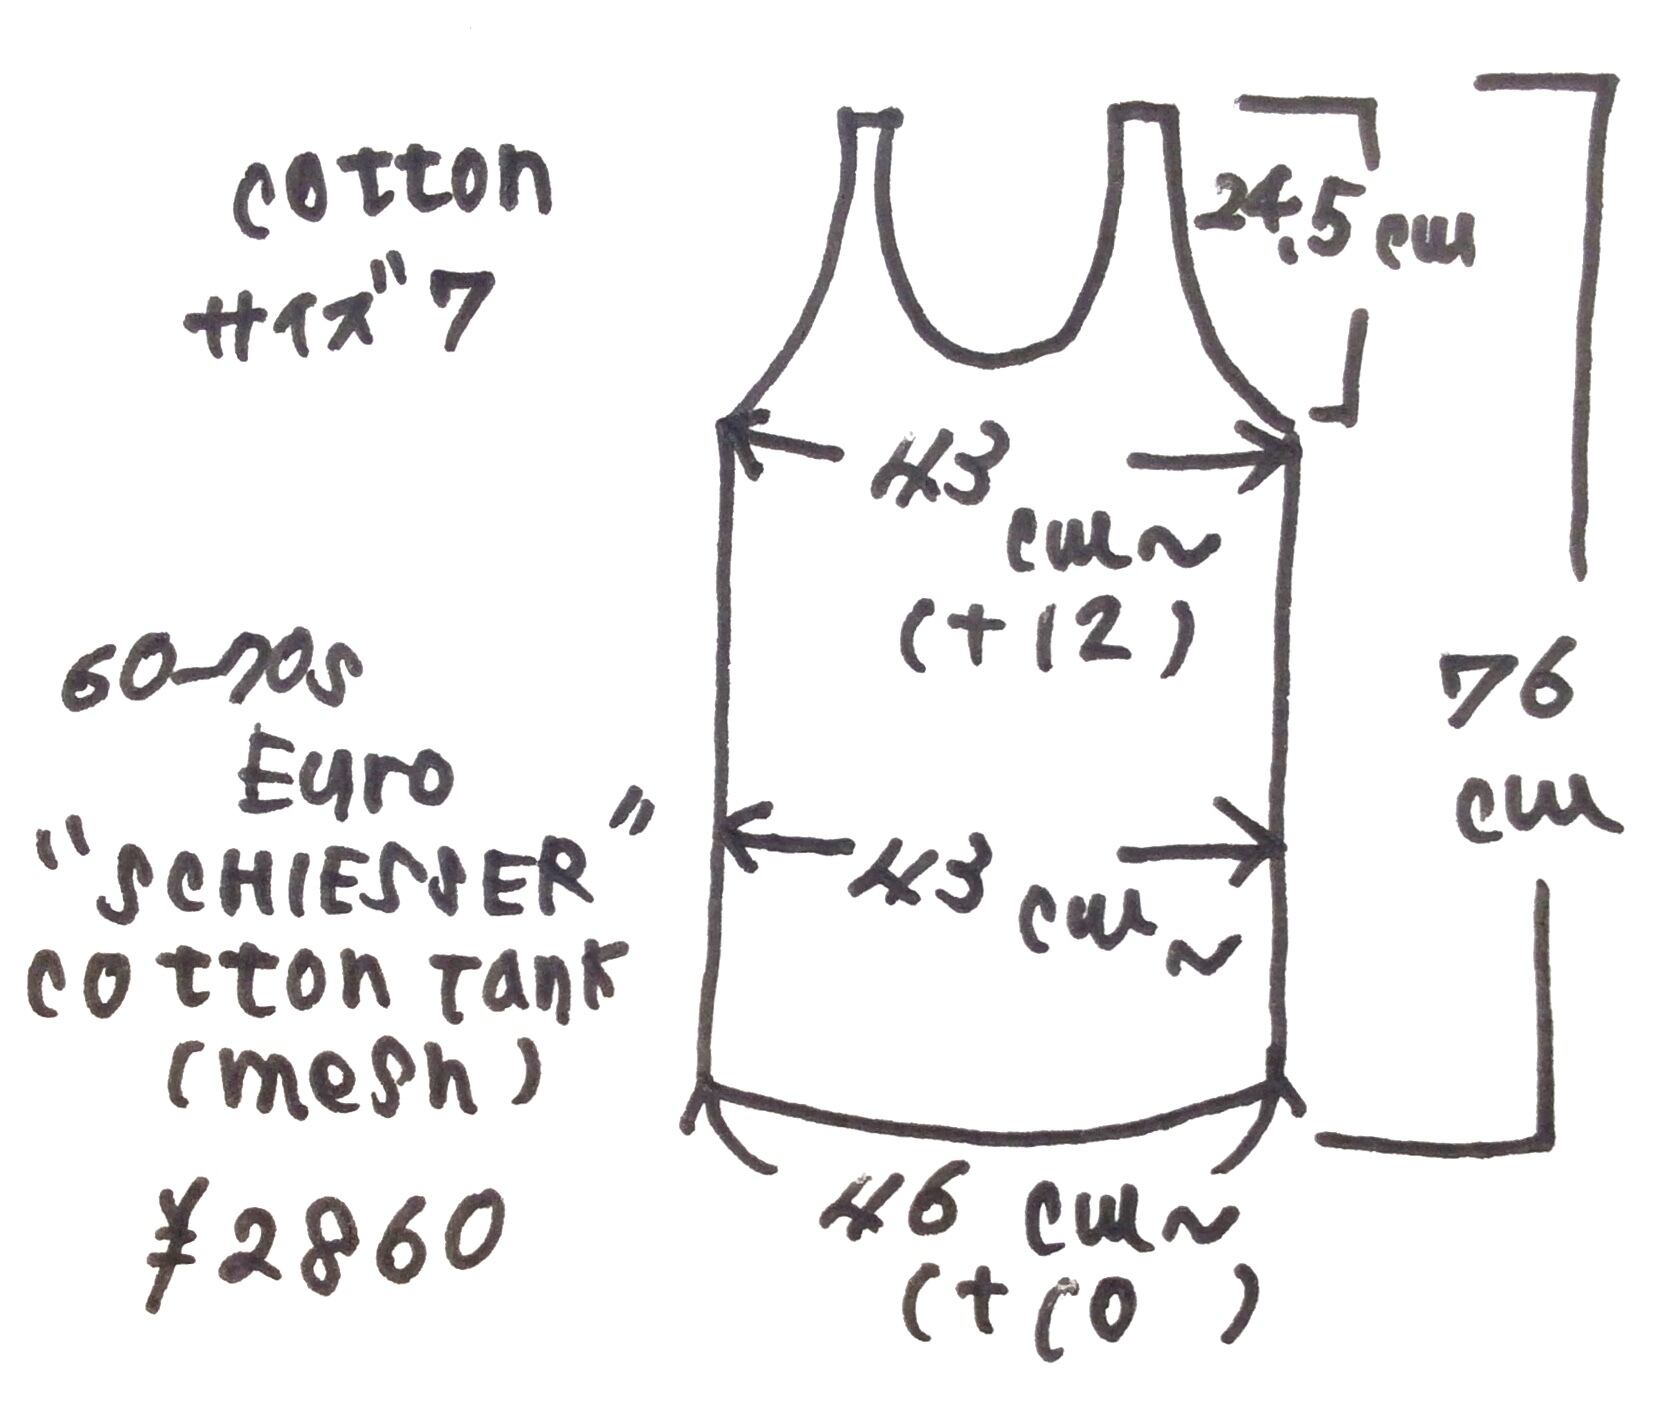 cotton
サイズ 7
24.5 cm
43
cm~
(+12)
76
cm
60-70s
Euro
"SCHIESSER"
cotton Tank
(mesh)
¥2860
43 cm~
46 cm~
(+10)